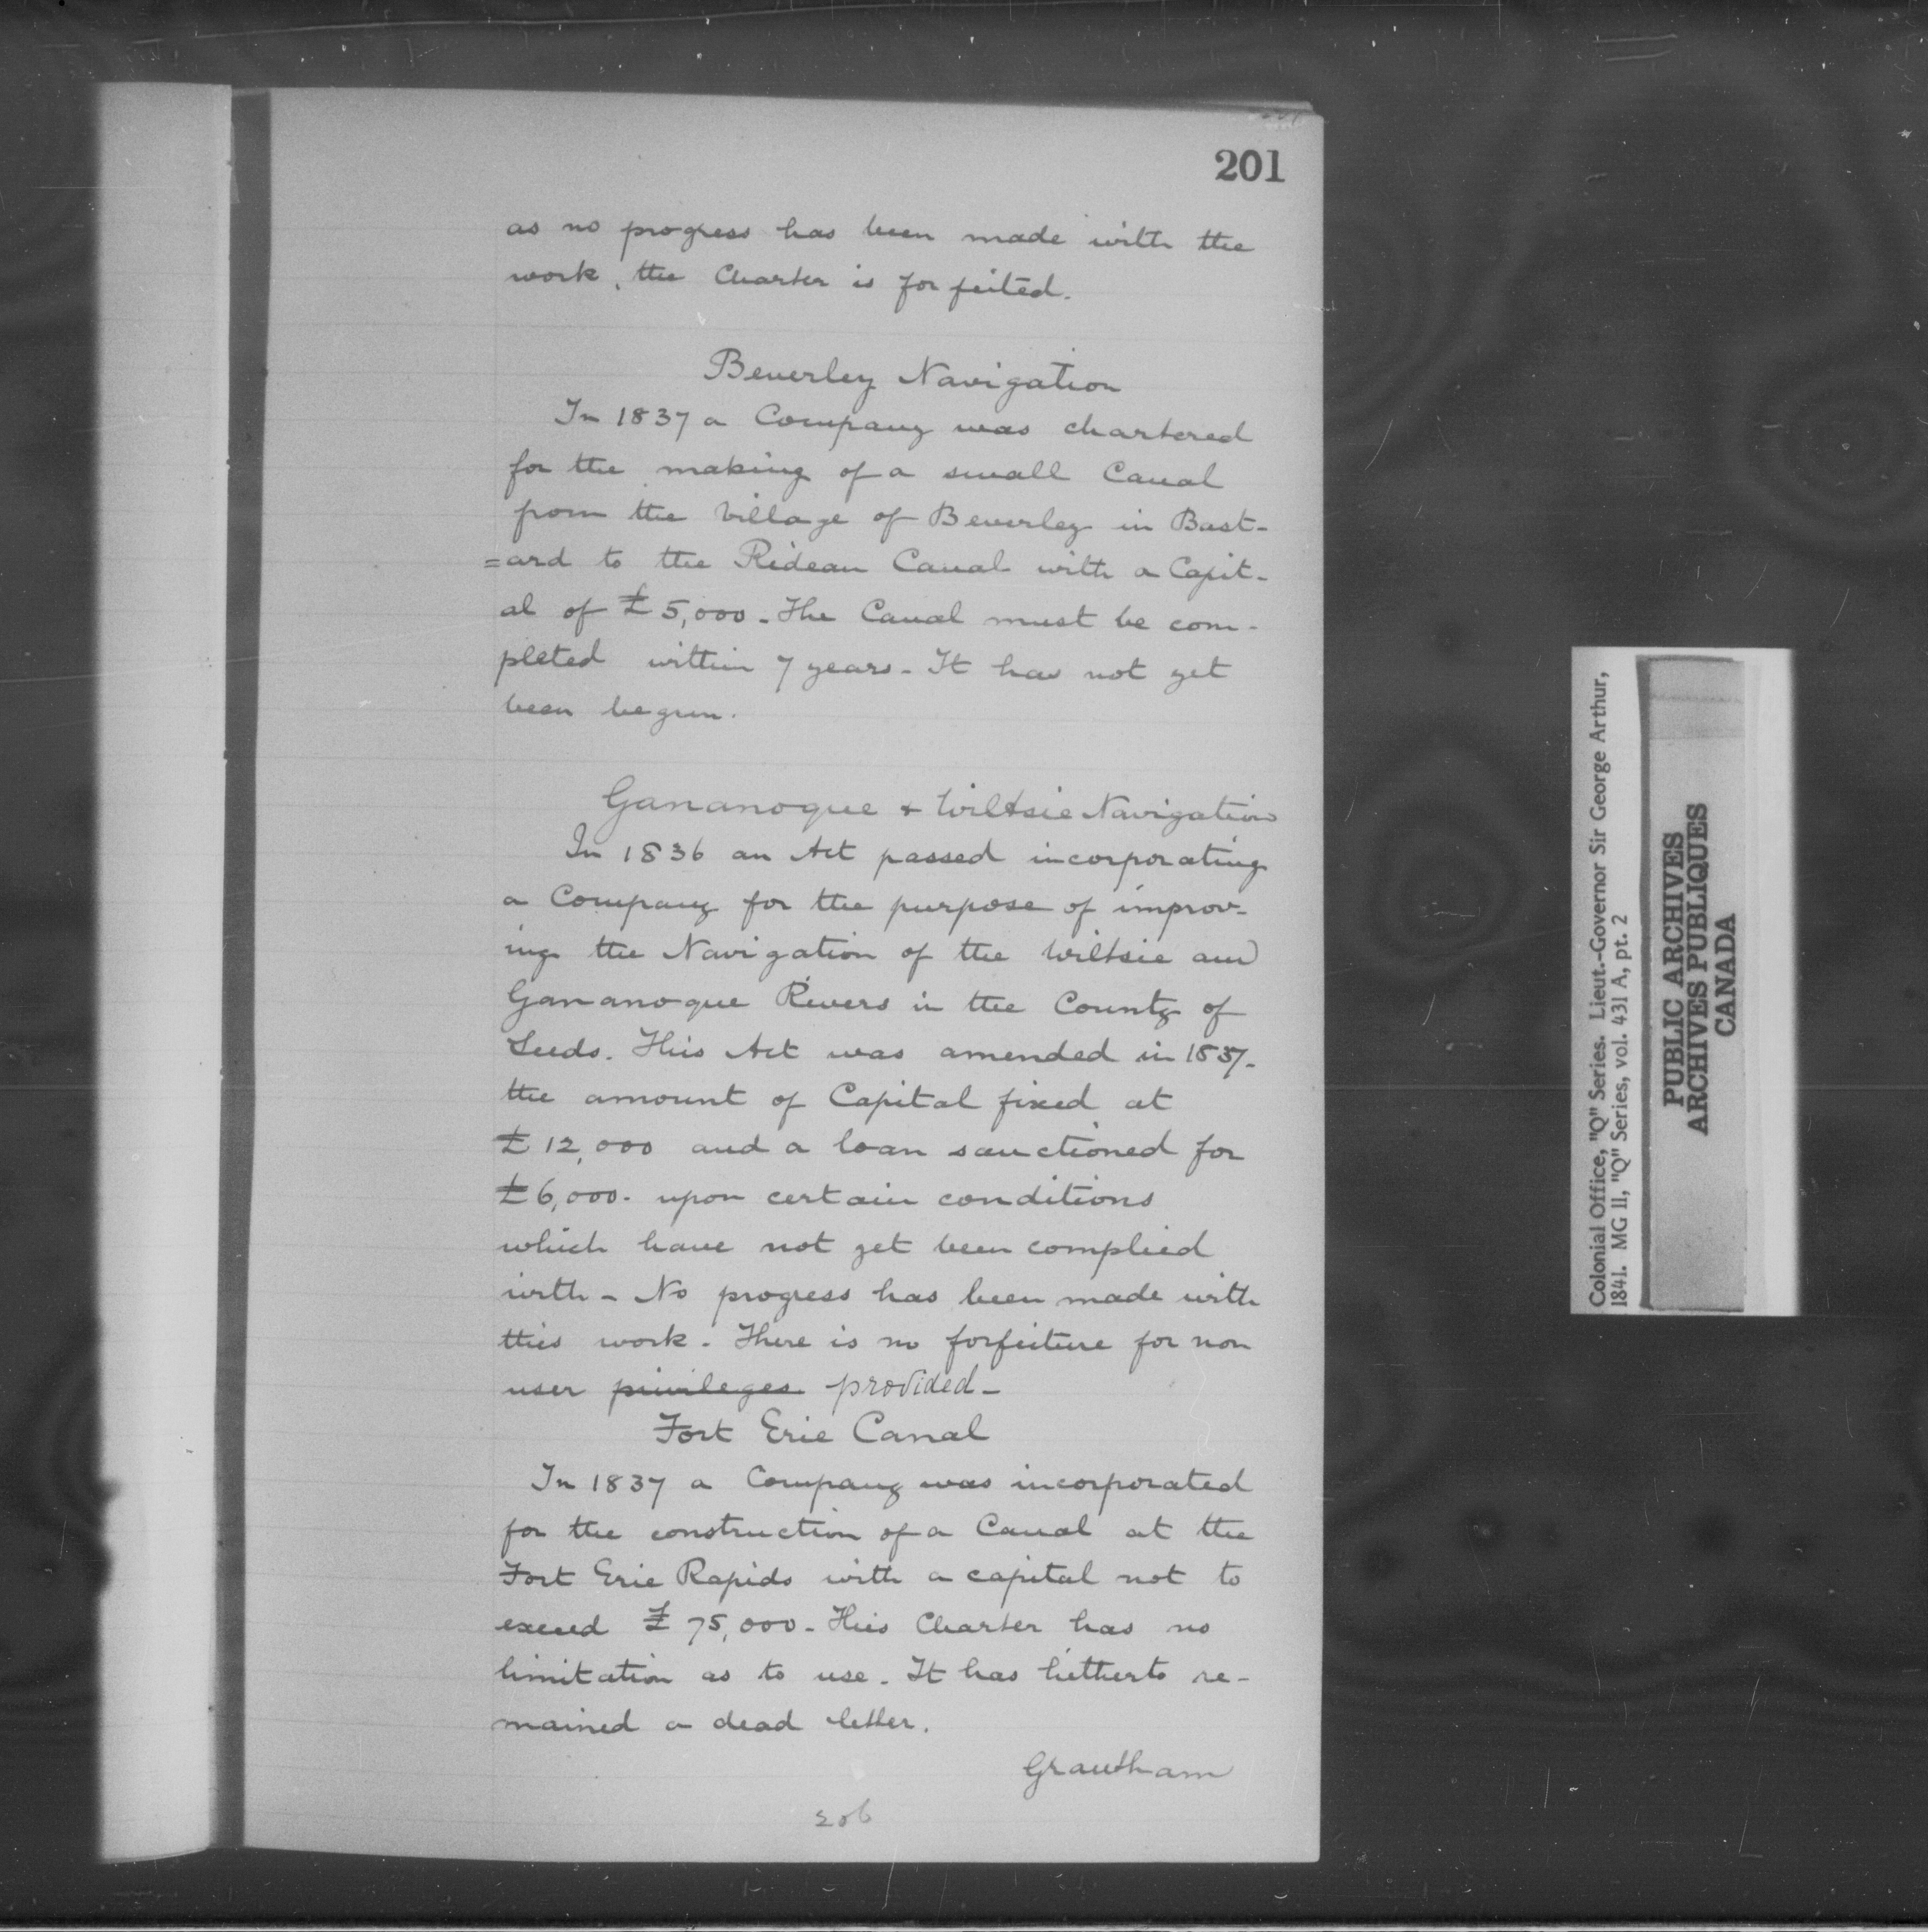 201
as no progress has been made with the
work, the Charter is forfeited.
Beverley Navigation
In 1837 a Company was chartered
for the making of a small Canal
from the Village of Beverley in Bast-
=ard to the Rideau Canal with a Capit-
al of £5,000 - The Canal must be com-
pleted within 7 years - It has not yet
been begun.
Gananoque & Wiltsie Navigation
In 1836 an Act passed incorporating
a Company for the purpose of improv-
ing the Navigation of the Wiltsie and
Gananoque Rivers in the County of
Leeds. This Act was amended in 1837-
the amount of Capital fixed at
£12,000 and a loan sanctioned for
£6,000. upon certain conditions
which have not yet been complied
with - No progress has been made with
this work - There is no forfeiture for non
user privileges provided -
Fort Erie Canal
In 1837 a Company was incorporated
for the construction of a Canal at the
Fort Erie Rapids with a capital not to
exceed £75,000 - This Charter has no
limitation as to use - It has hitherto re-
mained a dead letter.
Grantham
206
Colonial Office, "Q" Series. Lieut.-Governor Sir George Arthur,
1841. MG 11, "Q" Series, vol. 431 A, pt. 2
PUBLIC ARCHIVES
ARCHIVES PUBLIQUES
CANADA